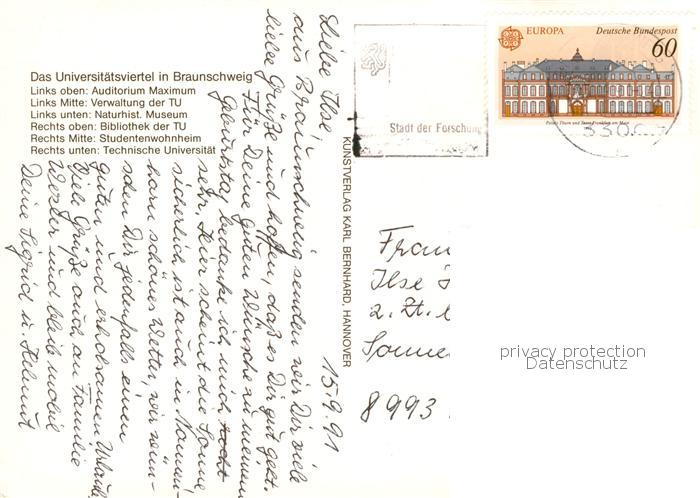 Das Universitätsviertel in Braunschweig
Links oben: Auditorium Maximum
Links Mitte: Verwaltung der TU
Links unten: Naturhist. Museum
Rechts oben: Bibliothek der TU
Rechts Mitte: Studentenwohnheim
Rechts unten: Technische Universität
15.9.91
Liebe Ilse,
aus Braunschweig senden wir Dir viele
liebe Grüße und hoffen, daß es Dir gut geht.
Für Deine guten Wünsche zu meinem
Geburtstag bedanke ich mich recht
sehr. Hier scheint die Sonne
sicherlich ist auch in
schönes Wetter, wir wün-
schen Dir jedenfalls einen
guten und erholsamen Urlaub
Viele Grüße auch an Familie
und bleib mobil
Deine Sigrid u. Helmut
KUNSTVERLAG KARL BERNHARD, HANNOVER
Stadt der Forschung
EUROPA
Deutsche Bundespost
60
Palais Thurn und Taxis Frankfurt am Main
3300
Frau
Ilse
z. Zt.
Sonne
8993
privacy protection
Datenschutz